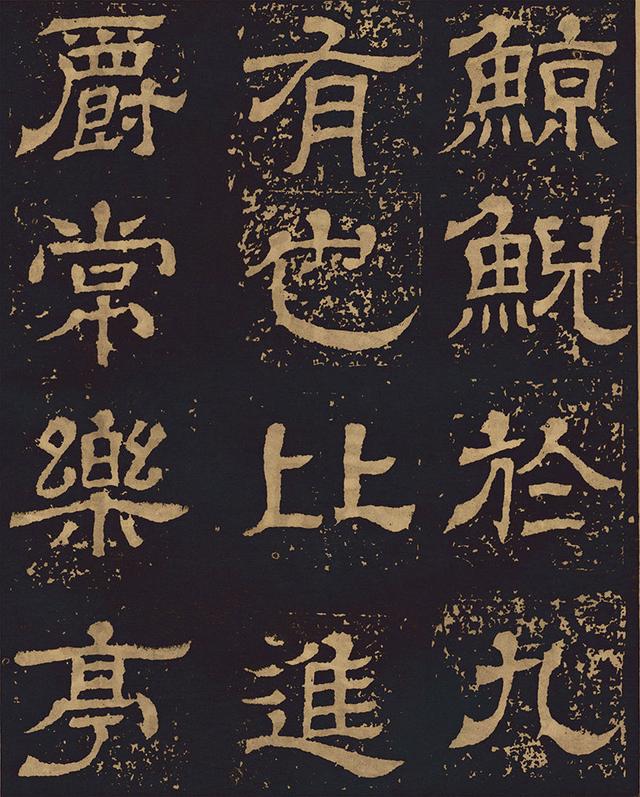 鯨鯢於九
有也比進
爵常樂亭